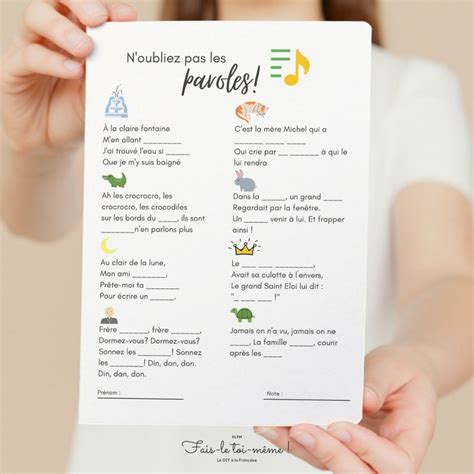 N'oubliez pas les
paroles!
À la claire fontaine
M'en allant ________
J'ai trouvé l'eau si _____
Que je m'y suis baigné
C'est la mère Michel qui a
______ ___ ____
Qui crie par __ _______ à qui le
lui rendra
Ah les crocrocro, les
crocrocro, les crocodiles
sur les bords du ____, ils sont
_______n'en parlons plus
Dans la _____, un grand ____
Regardait par la fenêtre.
Un _____ venir à lui, Et frapper
ainsi !
Au clair de la lune,
Mon ami _______,
Prête-moi ta ______
Pour écrire un _____,
Le ___ _________,
Avait sa culotte à l'envers,
Le grand Saint Eloi lui dit :
"___ ____ ____"
Frère ______, frère ______,
Dormez-vous? Dormez-vous?
Sonnez les ______! Sonnez
les _______! Din, dan, don.
Din, dan, don.
Jamais on n'a vu, jamais on ne
____, La famille _____, courir
après les ____
Prénom :
Note :
Fais-le toi-même !
Le DIY à la Française